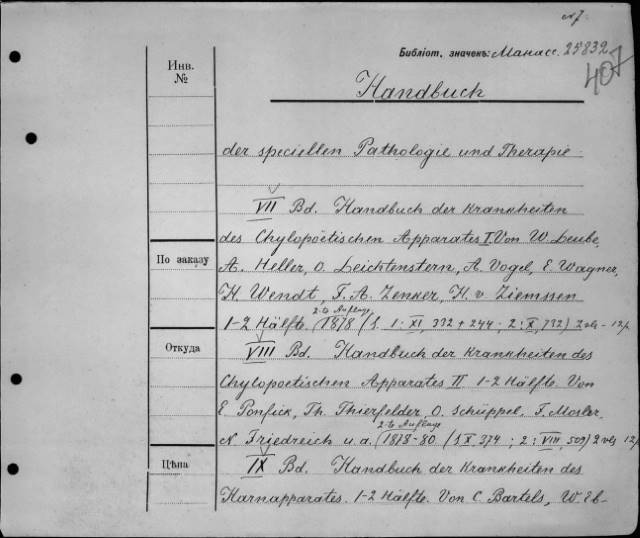 N7.
Библіот. значекъ: Манасс. 25832
407
Инв.
№
Handbuch
der speciellen Pathologie und Therapie
VII Bd. Handbuch der Krankheiten
des Chylopoëtischen Apparates I. Von W. Leube,
По заказу
A. Heller, O. Leichtenstern, A. Vogel, E. Wagner,
H. Wendt, F. A. Zenker, H. v. Ziemssen
2-te Auflage
1-2 Hälfte. (1878 (1. 1: XI, 332 + 244; 2: X, 732) 2 vls - 12 р.
Откуда
VIII Bd. Handbuch der Krankheiten des
Chylopoetischen Apparates II 1-2 Hälfte. Von
E. Ponfick, Th. Thierfelder, O. Schüppel, F. Mosler,
2-te Auflage
N. Friedreich u. a. (1878-80 (1. X 374; 2: VIII, 509) 2 vls 12 р.
Цѣна
IX Bd. Handbuch der Krankheiten des
Harnapparates. 1-2 Hälfte. Von C. Bartels, W. Eb-